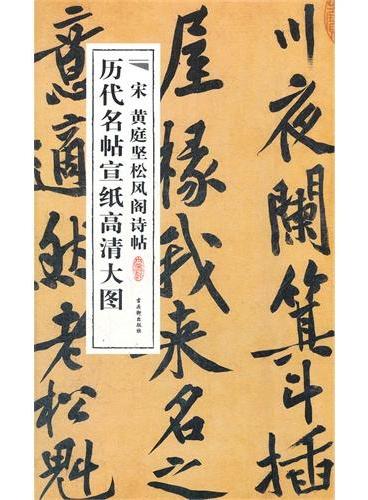 川夜阑箕斗插
屋椽我来名之
意適然老松魁
宋 黄庭坚松风阁诗帖
历代名帖宣纸高清大图
古吴轩出版社